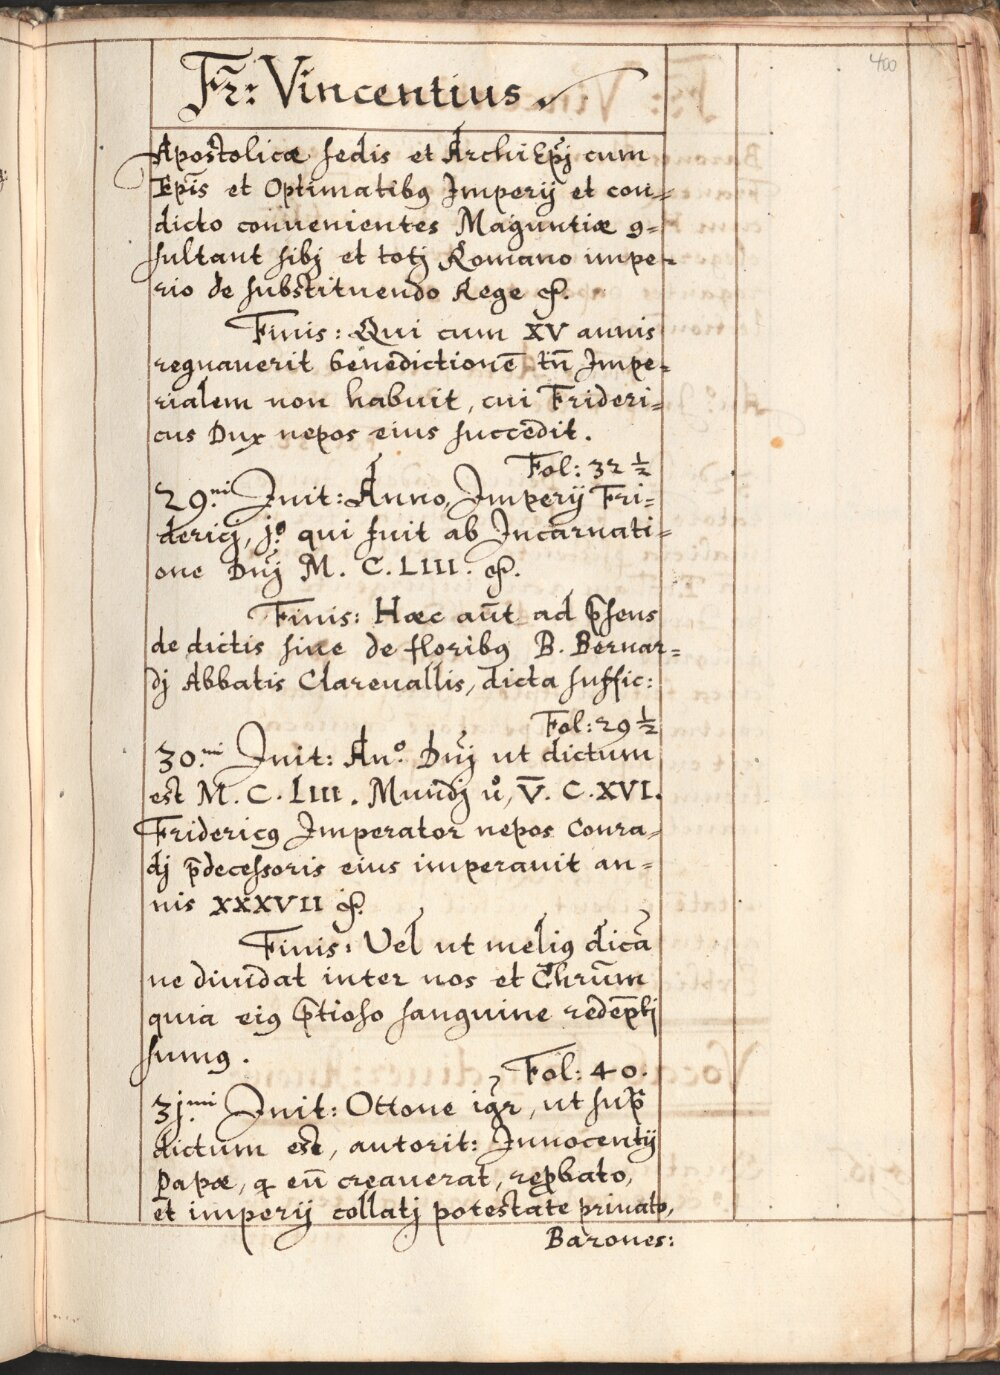 400
Fr̃: Vincentius.
Apostolicæ sedis et ArchiEp̃j cum
Ep̃is et Optimatibꝰ Imperij et con=
dicto conuenientes Maguntiæ ꝯ=
sultant sibj et totj Romano impe=
rio de substituendo Rege &.
Finis: Qui cum XV annis
regnauerit benedictionē tñ Impe=
rialem non habuit, cui Frideri=
cus Dux nepos eius succedit.
Fol: 32 ½
29.mi Init: Anno, Imperij Fri=
dericj, j.º qui fuit ab Incarnati=
one Dñj M. C. LIII. &.
Finis: Hæc aūt ad p̄sens
de dictis siue de floribꝰ B. Bernar=
dj Abbatis Clareuallis, dicta suffic:
Fol: 29 ½
30.mi Init: An.º Dñj ut dictum
est M. C. LIII. Mundj ů, V̄. C. XVI.
Fridericꝰ Imperator nepos Conra=
dj p̄decessoris eius imperauit an=
nis XXXVII &.
Finis: Vel ut meliꝰ dicā
ne diuidat inter nos et Chrūm
quia eiꝰ p̄tioso sanguine redēptj
sumꝰ.
Fol: 40.
3j.mi Init: Ottone igr̃, ut sup̃
dictum est, autorit: Innocentij
Papæ, q̨ eū creauerat, rep̱bato,
et imperij collatj potestate priuato,
Barones: